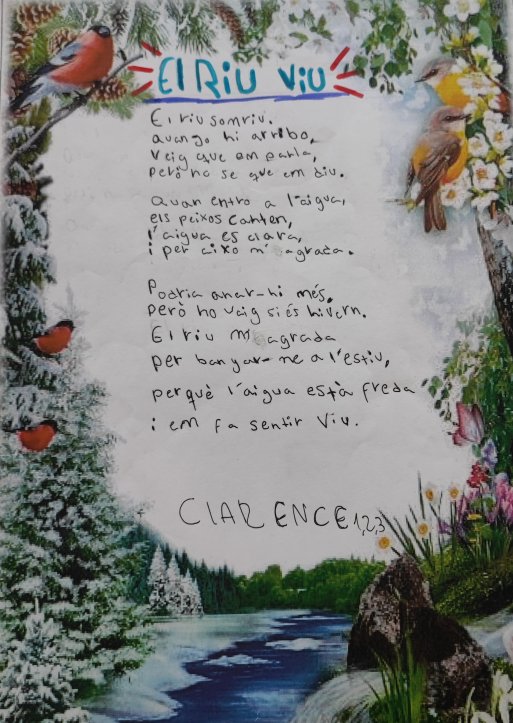 El Riu viu
El riu somriu.
Quan jo hi arribo,
veig que em parla,
però no se que em diu.
Quan entro a l'aigua,
els peixos canten,
l'aigua es clara,
i per aixo m'agrada.
Podria anar-hi més,
però no vaig si és hivern.
El riu m'agrada
per banyar-me a l'estiu,
perquè l'aigua està freda
i em fa sentir viu.
CLARENCE1,2,3